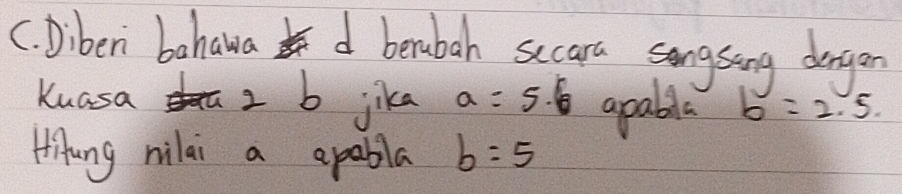 C. Diberi bahawa d berubah secara songsang dengan
kuasa 2 b jika a = 5.6 apabila b = 2.5.
Hitung nilai a apabila b = 5